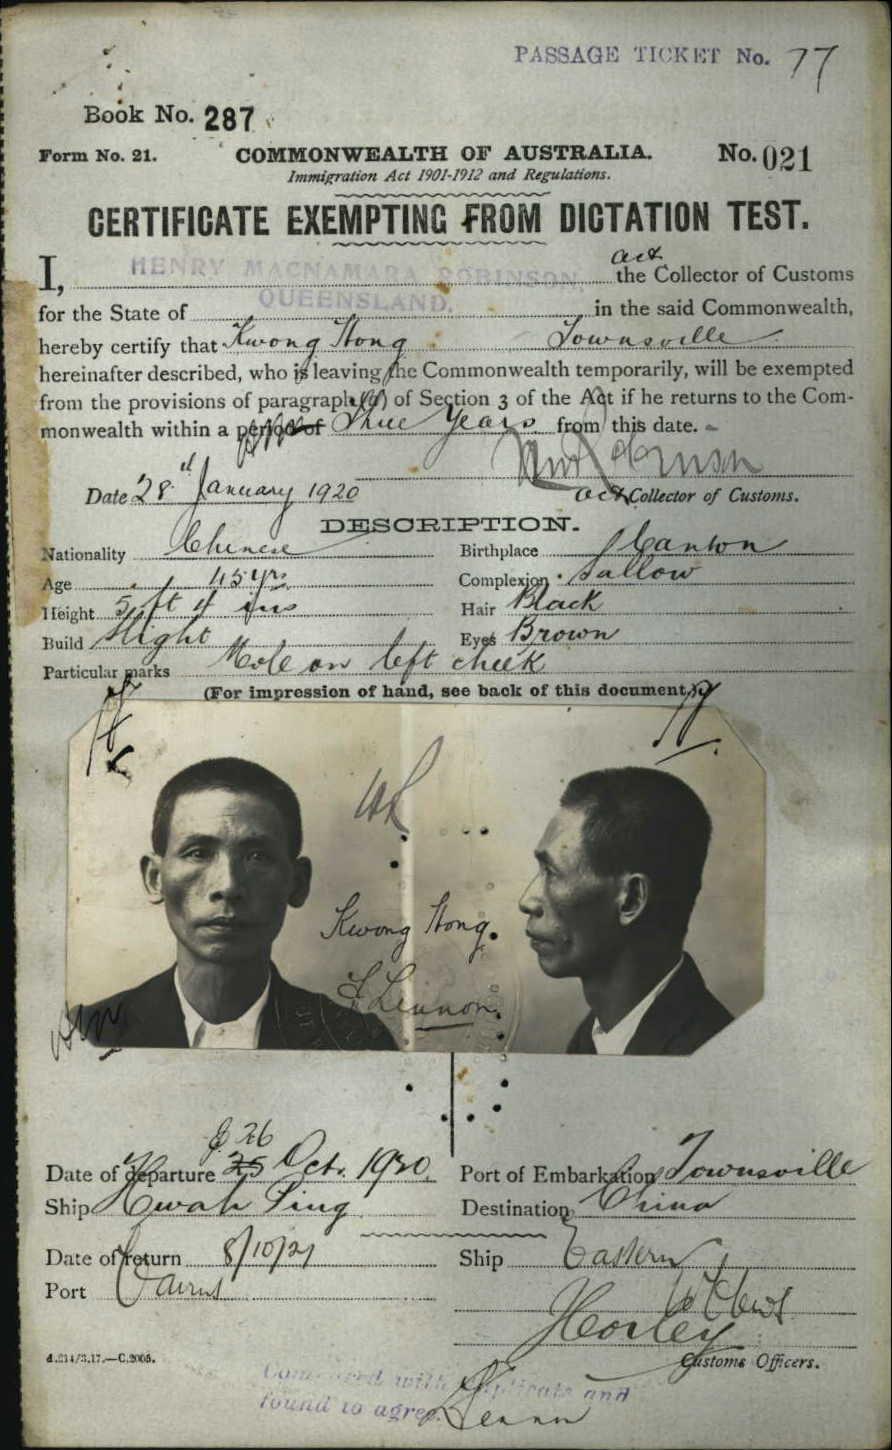 PASSAGE TICKET No. 77
Book No. 287
Form No. 21. COMMONWEALTH OF AUSTRALIA. No. 021
Immigration Act 1901-1912 and Regulations.
CERTIFICATE EXEMPTING FROM DICTATION TEST.
act
I, HENRY MACNAMARA ROBINSON, the Collector of Customs
for the State of QUEENSLAND, in the said Commonwealth,
hereby certify that Kwong Hong Townsville
hereinafter described, who is leaving the Commonwealth temporarily, will be exempted
from the provisions of paragraph (a) of Section 3 of the Act if he returns to the Com-
monwealth within a period of Three Years from this date.
Date 28th January 1920 act Collector of Customs.
DESCRIPTION.
Nationality Chinese Birthplace Canton
Age 45 yrs Complexion Sallow
Height 5 ft 4 ins Hair Black
Build Slight Eyes Brown
Particular marks Mole on left cheek
(For impression of hand, see back of this document.)
Kwong Hong.
F Lennon.
26
Date of departure 25 Oct. 1920. Port of Embarkation Townsville
Ship Hwah Ping Destination China
Date of return 8/10/21 Ship Eastern
Port Cairns
Customs Officers.
d.214/3.17.—C.2005.
Compared with duplicate and
found to agree.